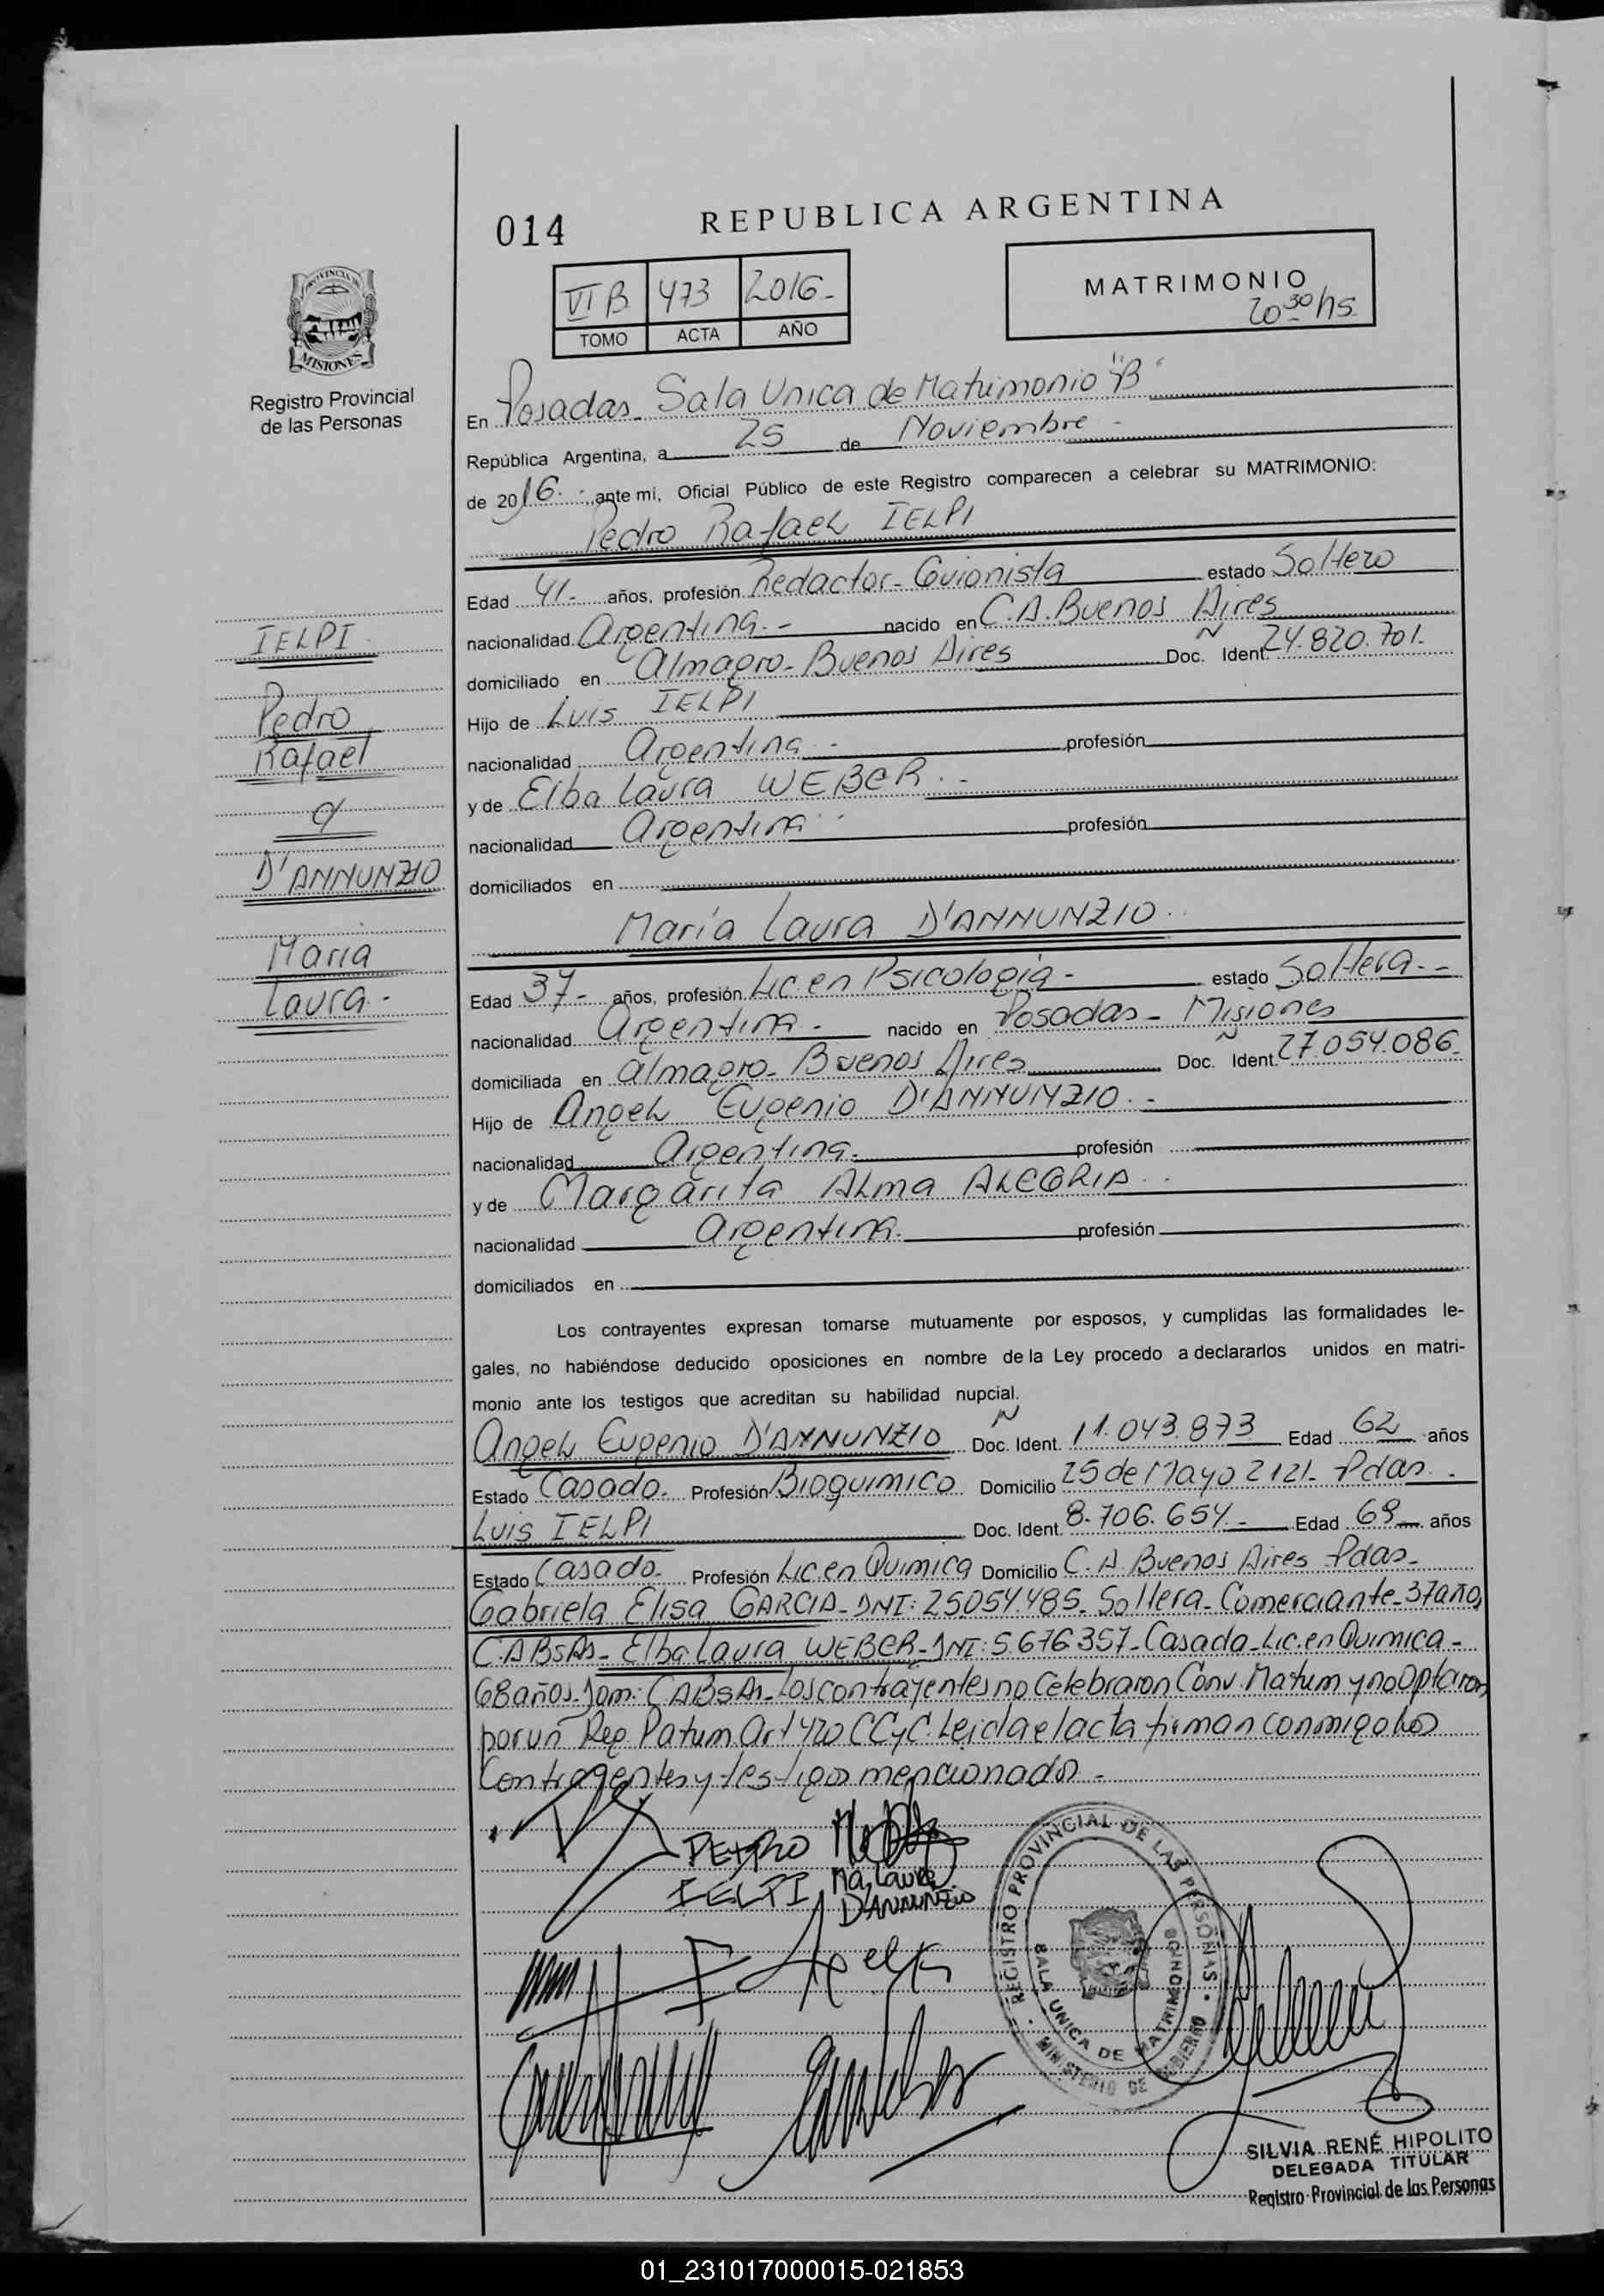 014
REPUBLICA ARGENTINA
PROVINCIA DE
MISIONES
Registro Provincial
de las Personas
VI B 473 2016-
TOMO ACTA AÑO
MATRIMONIO
20 30 hs
En Posadas- Sala Unica de Matrimonio "B"
República Argentina, a 25 de Noviembre -
de 2016.- ante mi, Oficial Público de este Registro comparecen a celebrar su MATRIMONIO:
Pedro Rafael IELPI
Edad 41- años, profesión Redactor-Guionista estado Soltero
nacionalidad Argentina.- nacido en C.A. Buenos Aires
domiciliado en Almagro- Buenos Aires Doc. Ident. N 24.820.701.
Hijo de Luis IELPI
nacionalidad Argentina.- profesión
y de Elba Laura WEBER.-
nacionalidad Argentina profesión
domiciliados en
IELPI
Pedro
Rafael
a
D'ANNUNZIO
Maria
Laura.-
María Laura D'ANNUNZIO.
Edad 37- años, profesión Lic. en Psicología- estado Soltera.-
nacionalidad Argentina.- nacido en Posadas- Misiones
domiciliada en Almagro- Buenos Aires Doc. Ident. N 27.054.086.
Hijo de Angel Eugenio D'ANNUNZIO.-
nacionalidad Argentina. profesión
y de Margarita Alma ALEGRIA.
nacionalidad Argentina. profesión
domiciliados en
Los contrayentes expresan tomarse mutuamente por esposos, y cumplidas las formalidades le-
gales, no habiéndose deducido oposiciones en nombre de la Ley procedo a declararlos unidos en matri-
monio ante los testigos que acreditan su habilidad nupcial.
Angel Eugenio D'ANNUNZIO Doc. Ident. N 11.043.873 Edad 62 años
Estado Casado. Profesión Bioquimico Domicilio 25 de Mayo 2121- Pdas.
Luis IELPI Doc. Ident. 8.706.654.- Edad 69 años
Estado Casado. Profesión Lic. en Quimica Domicilio C.A. Buenos Aires Pdas-
Gabriela Elisa GARCIA- DNI: 25.054.485. Soltera- Comerciante- 37 año,
C.A BsAs- Elba Laura WEBER- DNI: 5.676357- Casada- Lic. en Quimica-
68 años- Dom: CABsAs- Los contrayentes no Celebraron Conv. Matrim y no Optaron
por un Reg. Patrim Art 420 CCyC. Leida el acta firman conmigo los
Contrayentes y testigos mencionados-
PEDRO
IELPI
Ma. Laura
D'ANNUNZIO
REGISTRO PROVINCIAL DE LAS PERSONAS
SALA UNICA DE MATRIMONIOS
MINISTERIO DE GOBIERNO
SILVIA RENÉ HIPOLITO
DELEGADA TITULAR
Registro Provincial de las Personas
01_231017000015-021853